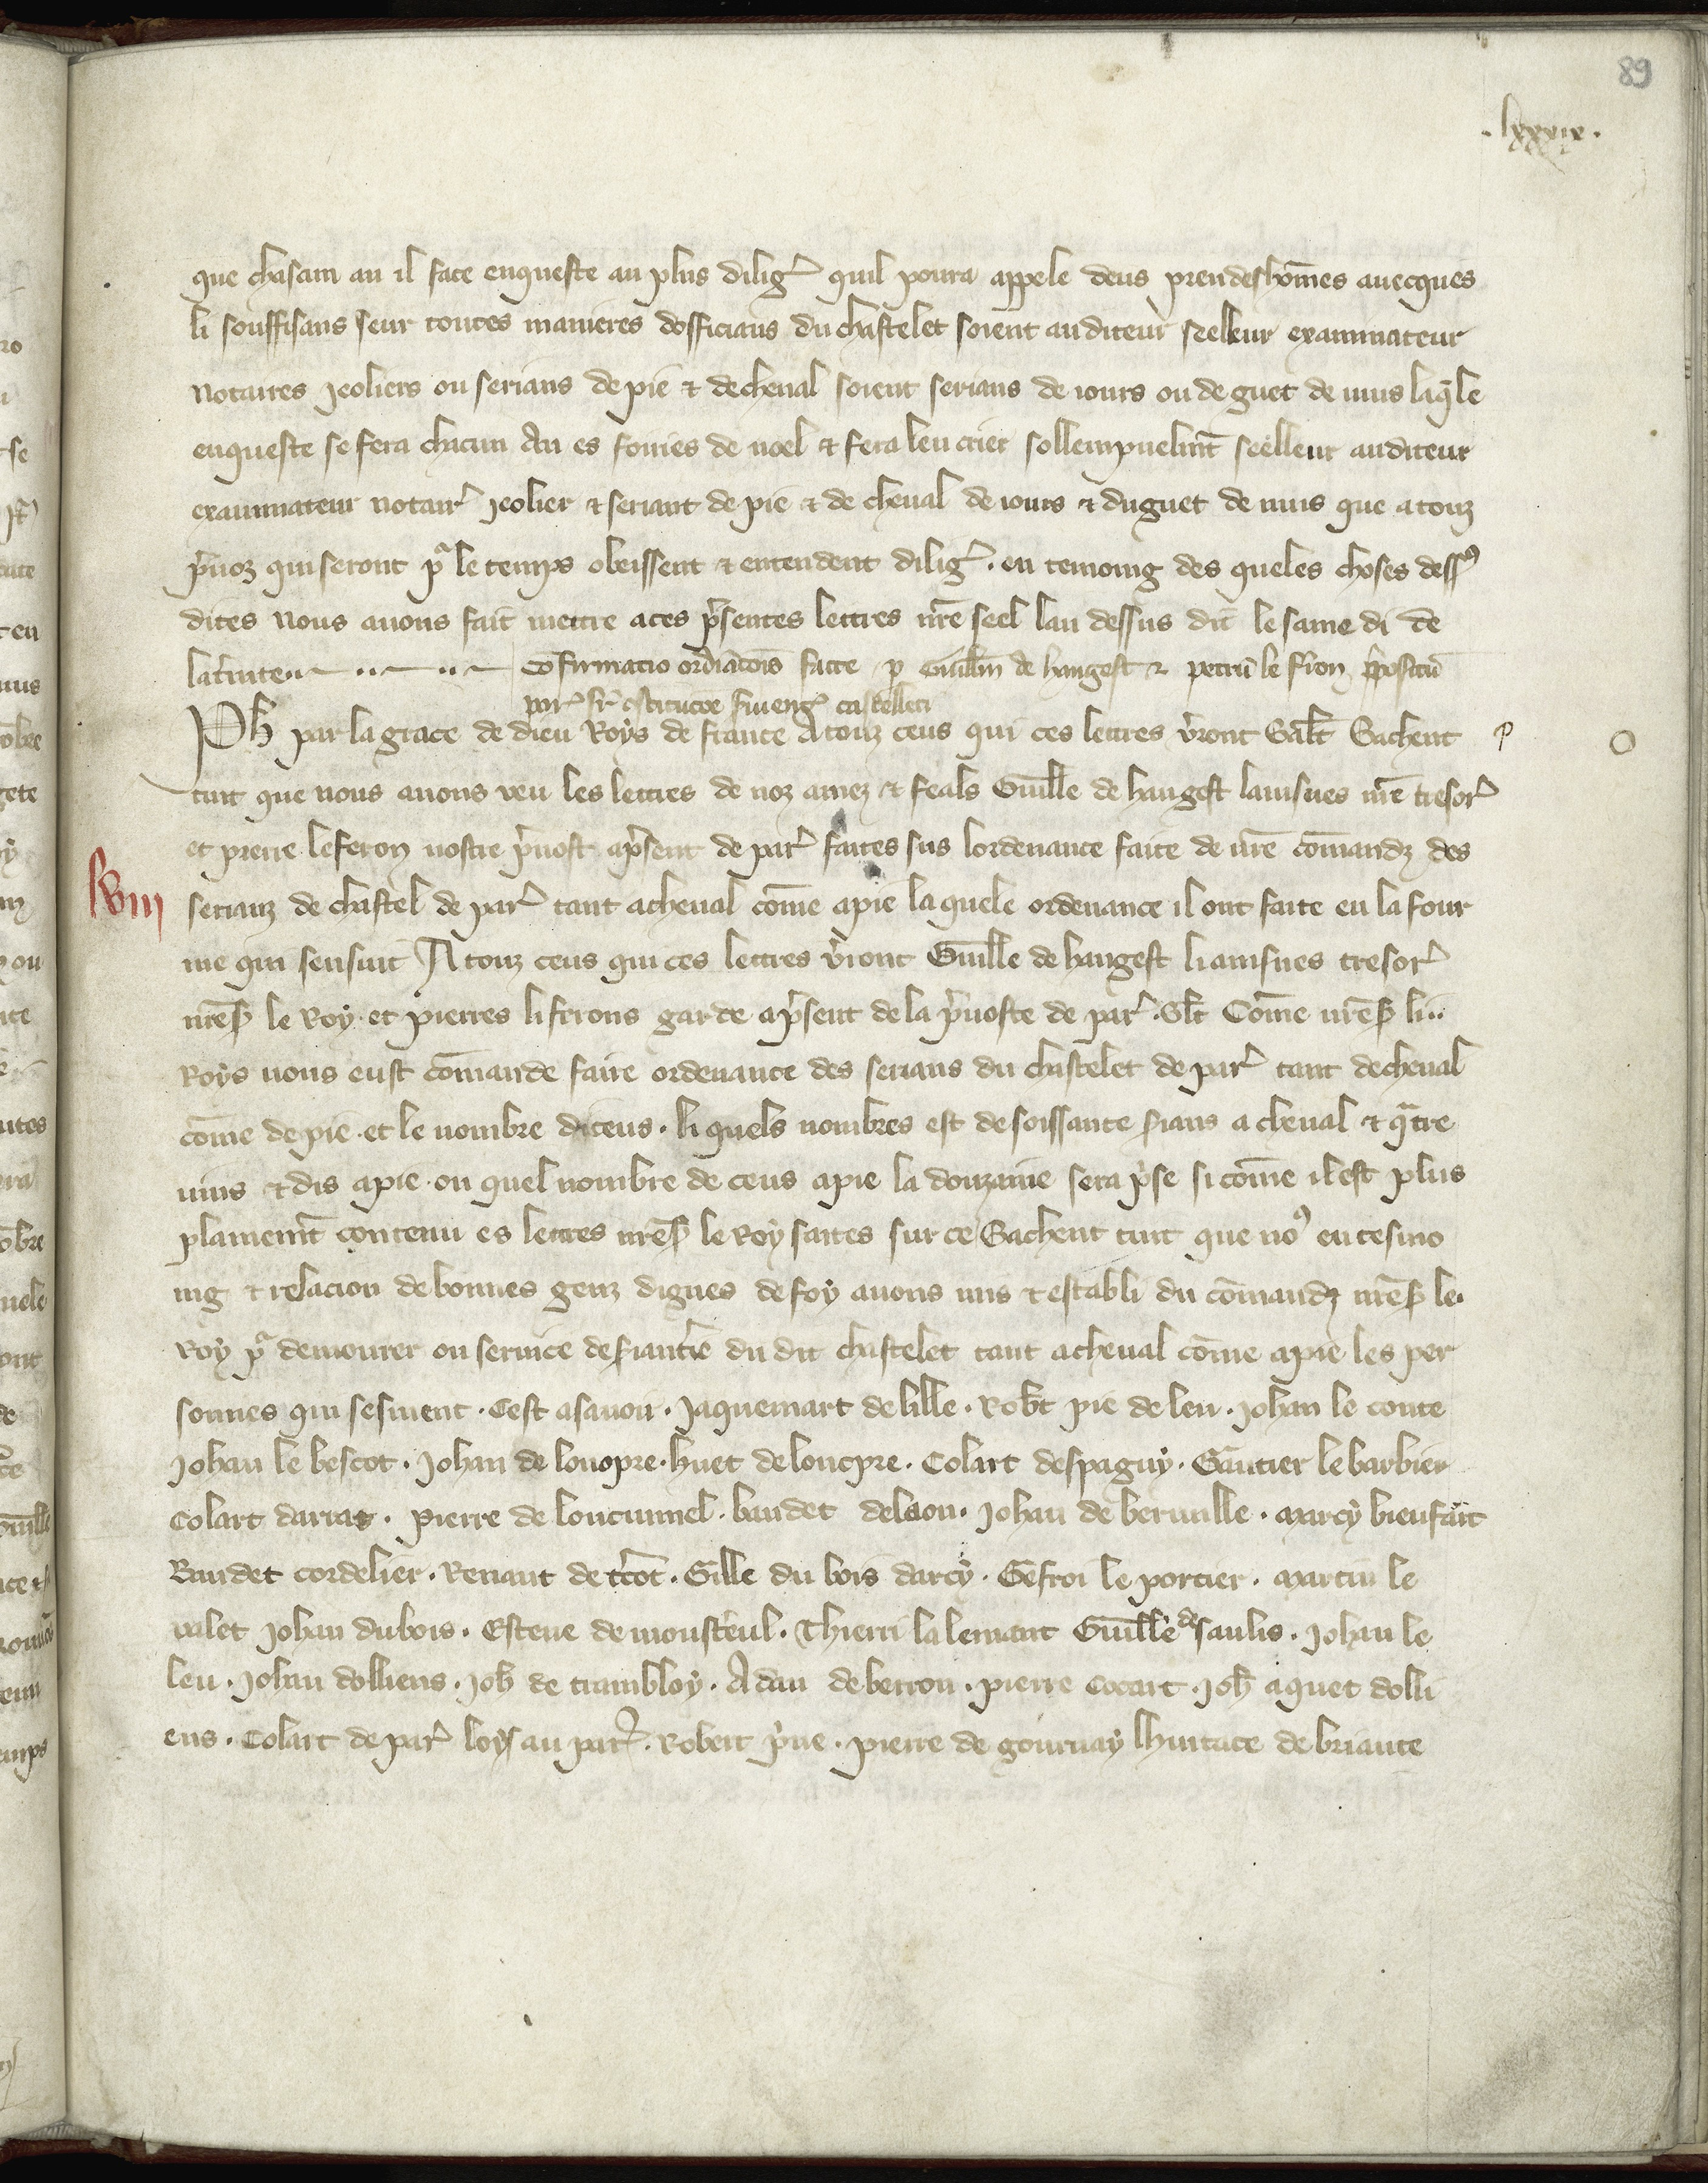 89
. lxxxix .
que chascun an il face enqueste au plus diligẽ quil poura appele deus preudeshõmes auecques
li souffisans seur toutes manieres dofficiaus du chastelet soient auditeur seelleur examinateur
notaires jeoliers ou serians de pie & de cheual soient serians de iours ou de guet de nuis laq̃le
enqueste se fera chacun An es foiries de noel & fera len crier sollempnelmt̃ seelleur auditeur
examinateur notair̃ jeolier & seriant de pie & de cheual de iours & du guet de nuis que a touz
p̃uoz qui seront pᵃ le temps obeissent & entendent diligẽ . en temoing des queles choses dessꝰ
dites nous auons fait mettre a ces p̃sentes lettres nr̃e seel lan dessus dit le same di de
la t̃nite
cõfirmatio ordĩatõis facte p Guillm̃ de hangest & petrũ le f̃ron p̃positũ
par̃ sr̃ ꝯstitucõe s̃uiẽg̃ castelleti
Ph̃ par la grace de dieu Roys de france A touz ceus qui ces lettres v̾ront Salt̃ Sachent
tuit que nous auons veu les lettres de noz amez & feals Guill̃e de hangest lainsnes nr̃e tresor̃
et pierre le feron nostre p̃uost a p̃sent de par̃ faites sus lordenance faite de nr̃e cõmandz̃ des
xviii
serianz de chastel de par̃ tant a cheual cõme a pie la quele ordenance il ont faite en la four
me qui sensuit A touz ceus qui ces lettres v̾ront Guill̃e de hangest li ainsnes tresor̃
nr̃eß le Roy . et pierres li ferons garde a p̃sent de la p̃uoste de par̃ . Slt̃ Cõme nr̃eß li ..
Roys nous eust cõmande faire ordenance des serians du chastelet de par̃ tant de cheual
cõme de pie . et le nombre diceus . li quels nombres est de soissante s̃ians a cheual & qᵃtre
uins & dis a pie . ou quel nombre de ceus a pie la douzaine sera p̃se si cõme il est plus
plainemt̃ contenu es lettres nr̃eß le Roy faites sur ce Sachent tuit que noꝰ en tesmo
ing & relacion de bonnes genz dignes de foy auons mis & establi du cõmandz̃ nr̃eß le
Roy pᵃ demourer ou seruice de s̃iantie du dit chastelet tant a cheual cõme a pie les per
sonnes qui sesiuent . Cest asauoir . Jaquemart de lille . Rob̃t pie de leu . Johan le conte
Johan le bescot . Johan de loncpre . huet de loncpre . Colart despaguy . Gautier le barbier
Colart darras . pierre de lonctumel . baudet de laon . Johan de beruille . marcy bienfait
Baudet cordelier . Renaut de tc̃ot . Gille du bois darcy . Gefroi le portier . martin le
valet Johan du bois . Esteue de monst̃eul . Thierri lalemant Guill̃e de saulis . Johan le
leu . Johan dolliens . Joh̃ de trambloy . Adan de berron . pierre cocart . Joh̃ aquet dolli
ens . Colart de par̃ loys au par̃ . Robert p̃ue . pierre de gournay lhuitace de briance